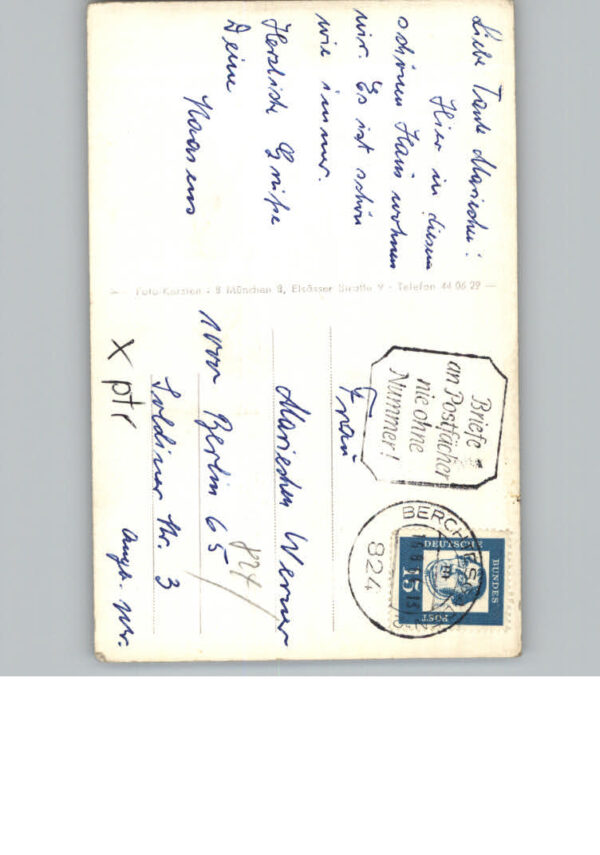 Liebe Tante Mariechen!
Hier in diesem
schönen Haus wohnen
wir. Es ist schön
wie immer.
Herzliche Grüße
Deine
Foto-Karsten · 8 München 8, Elsässer Straße 9 · Telefon 44 06 29
Briefe
an Postfächer
nie ohne
Nummer!
DEUTSCHE
BUNDES
POST
15
BERCHTESGADEN
824
Frau
Mariechen Werner
1000 Berlin 65
824
Soldiner Str. 3
X ptr